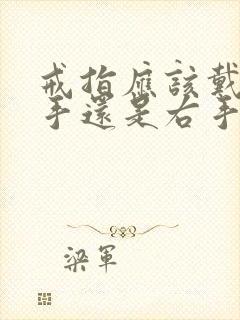 戒指應該戴
手還是右手
梁軍